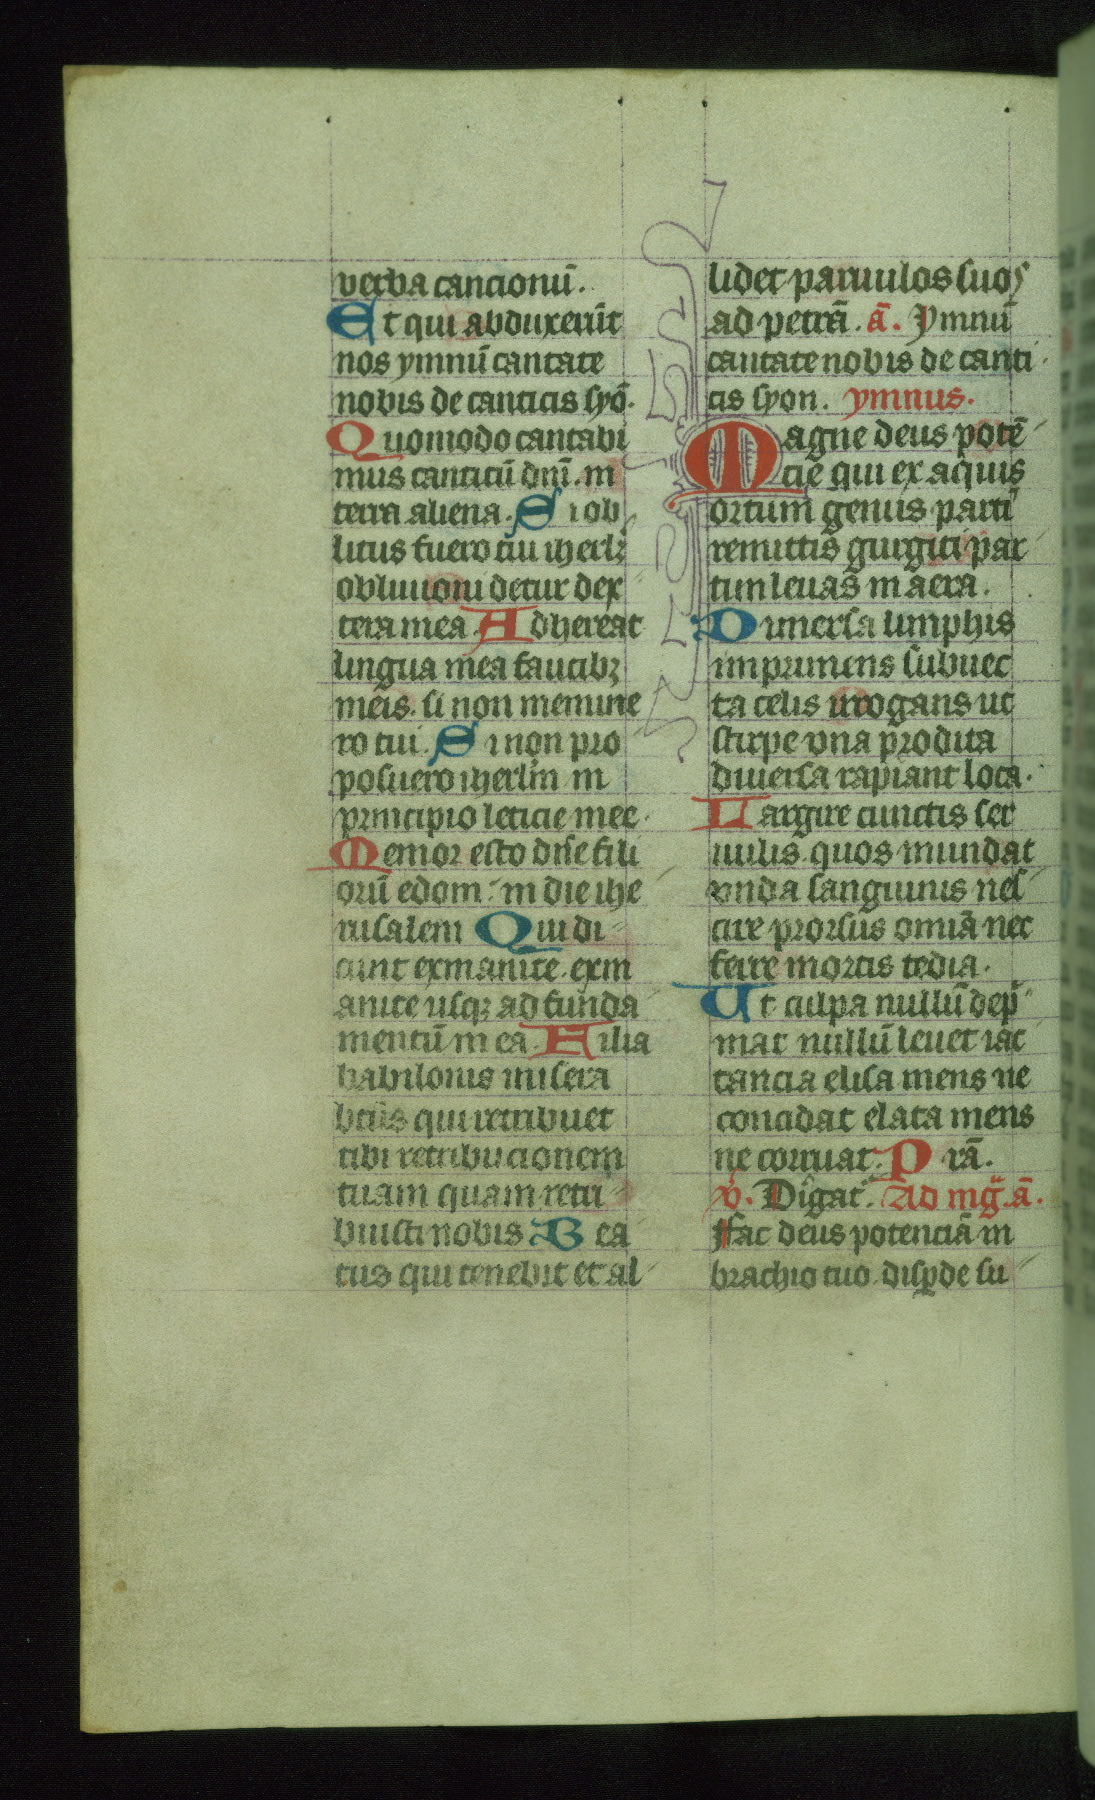 verba cancionū.
Et qui abduxerūt
nos ymnū cantate
nobis de canticis syō.
Quomodo cantabi
mus canticū dnī. in
terra aliena. Si ob
litus fuero tui iherlꝫ
oblivioni detur dex
tera mea Adhereat
lingua mea faucibꝫ
meis. si non memine
ro tui. Si non pro
posuero iherlm in
principio leticie mee.
Memor esto dn̄e fili
orū edom. in die ihe
rusalem Qui di
cunt exinanite. exin
anite usqꝫ ad funda
mentū in ea. Filia
babilonis misera
btūs qui retribuet
tibi retribucionem
tuam quam retri
buisti nobis Bea
tus qui tenebit et al
lidet parvulos suos
ad petrā. ā. Ymnū
cantate nobis de canti
cis syon. ymnus.
Magne deus potē
cie qui ex aquis
ortum genus parti
remittis gurgiti par
tim levas in aera.
Dimersa limphis
imprimens subvec
ta celis irrogans ut
stirpe una prodita
diversa rapiant loca.
Largire cunctis ser
vulis. quos mundat
unda sanguinis nes
cire prorsus omiā nec
ferre mortis tedia.
Ut culpa nullū dep̄
mat nullū levet iac
tancia elisa mens ne
concidat elata mens
ne corruat. P rā.
v̊. Dirigat. Ad mḡ. ā.
Ffac deus potenciā in
brachio tuo. disꝑde su